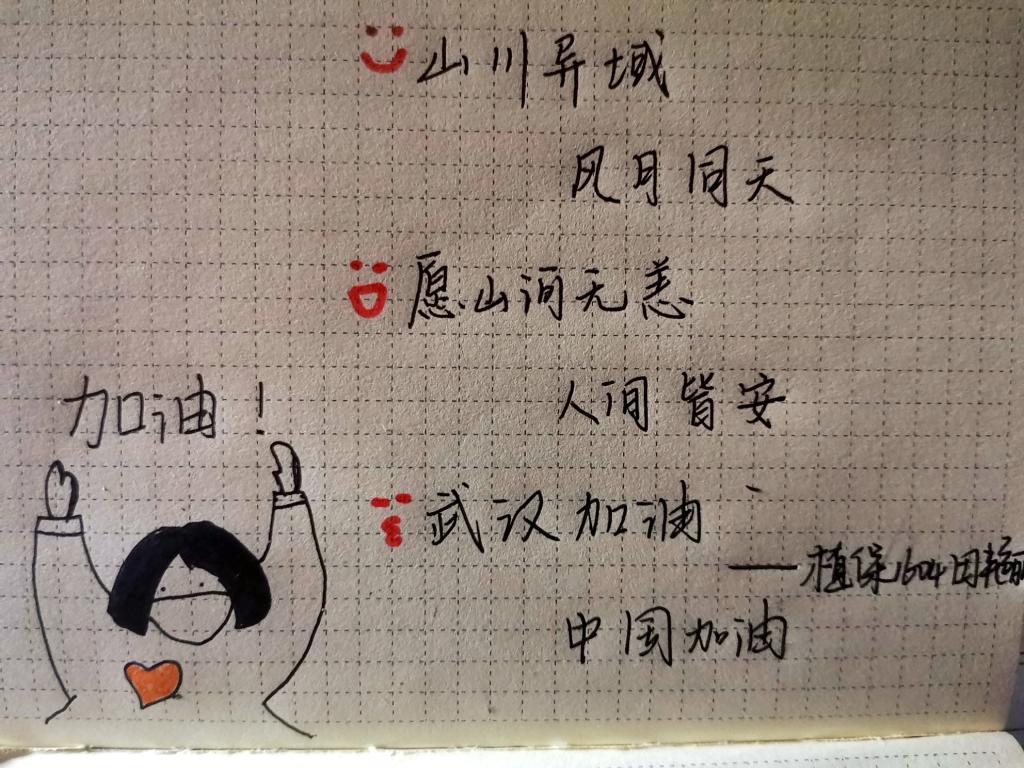 山川异域
风月同天
愿山河无恙
人间皆安
加油！
武汉加油
——植保1604田艳丽
中国加油